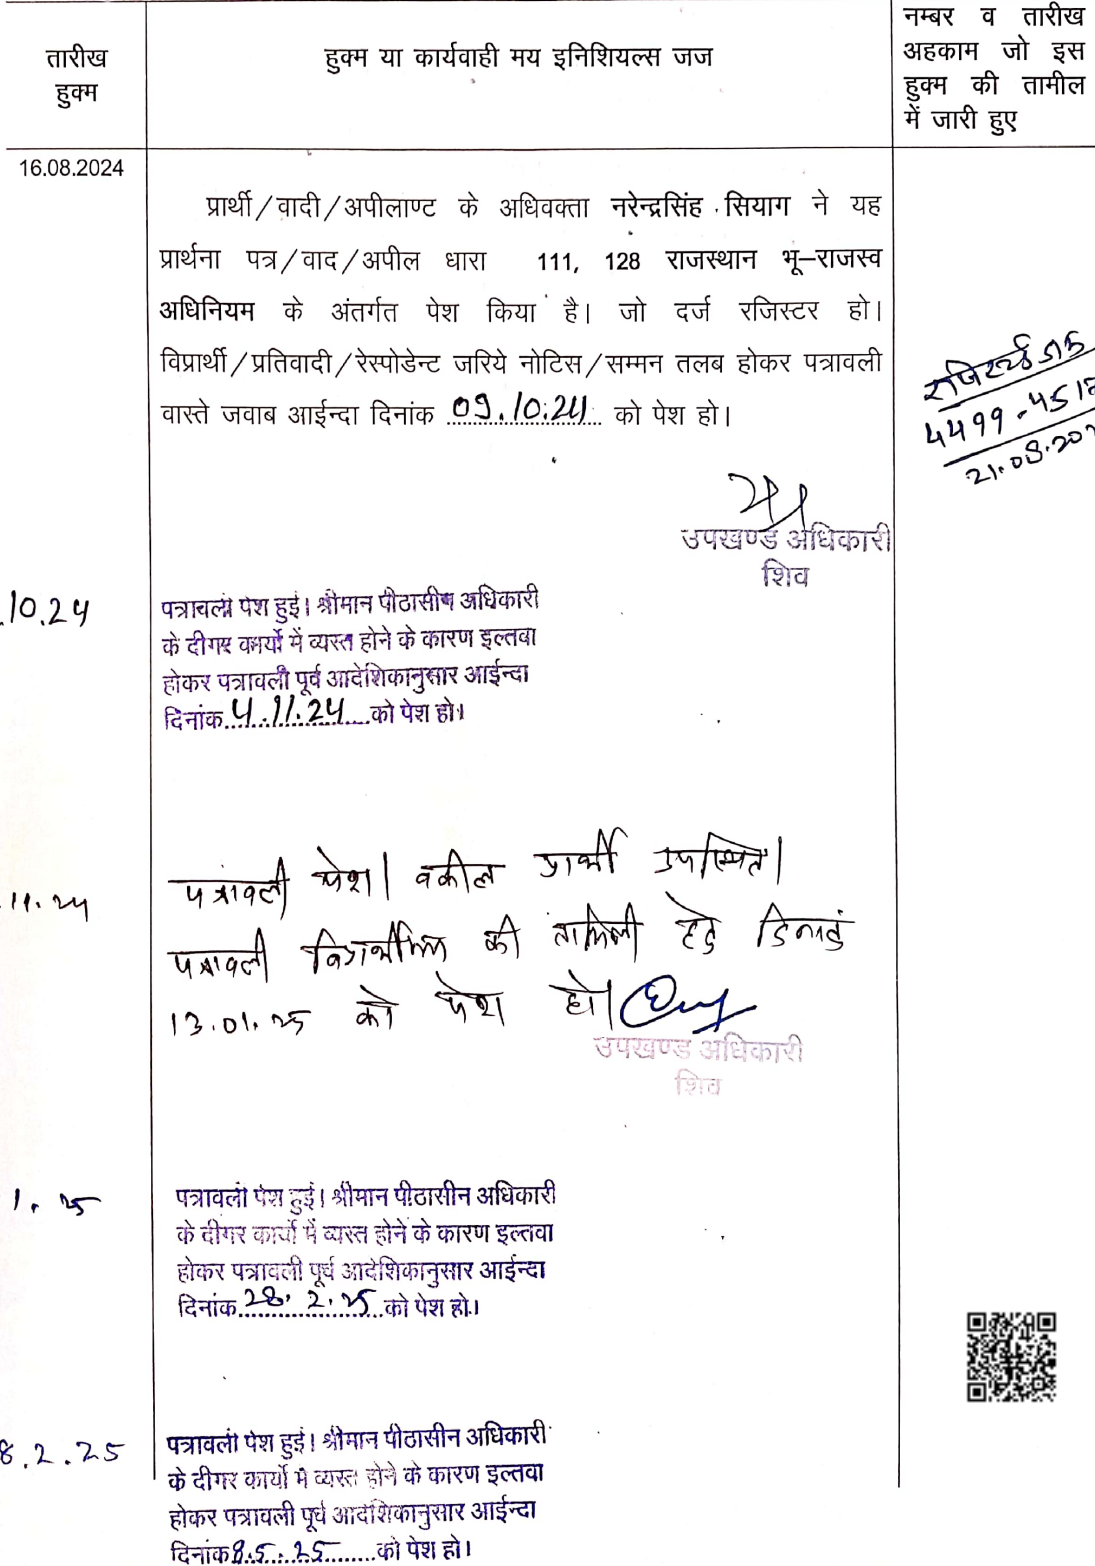 तारीख
हुक्म
हुक्म या कार्यवाही मय इनिशियल्स जज
नम्बर व तारीख
अहकाम जो इस
हुक्म की तामील
में जारी हुए
16.08.2024
प्रार्थी/वादी/अपीलाण्ट के अधिवक्ता नरेन्द्रसिंह सियाग ने यह
प्रार्थना पत्र/वाद/अपील धारा 111, 128 राजस्थान भू–राजस्व
अधिनियम के अंतर्गत पेश किया है। जो दर्ज रजिस्टर हो।
विप्रार्थी/प्रतिवादी/रेस्पोडेन्ट जरिये नोटिस/सम्मन तलब होकर पत्रावली
वास्ते जवाब आईन्दा दिनांक 09.10.24 को पेश हो।
4499-451
21.08.20
उपखण्ड अधिकारी
शिव
.10.24
पत्रावली पेश हुई। श्रीमान पीठासीन अधिकारी
के दीगर कार्यो में व्यस्त होने के कारण इल्तवा
होकर पत्रावली पूर्व आदेशिकानुसार आईन्दा
दिनांक 4.11.24 को पेश हो।
.11.24
पत्रावली पेश। वकील प्रार्थी उपस्थित।
पत्रावली की तामिली हेतु दिनांक
13.01.25 को पेश हो।
उपखण्ड अधिकारी
शिव
1.25
पत्रावली पेश हुई। श्रीमान पीठासीन अधिकारी
के दीगर कार्यो में व्यस्त होने के कारण इल्तवा
होकर पत्रावली पूर्व आदेशिकानुसार आईन्दा
दिनांक 28.2.25 को पेश हो।
8.2.25
पत्रावली पेश हुई। श्रीमान पीठासीन अधिकारी
के दीगर कार्यो में व्यस्त होने के कारण इल्तवा
होकर पत्रावली पूर्व आदेशिकानुसार आईन्दा
दिनांक 8.5.25 को पेश हो।